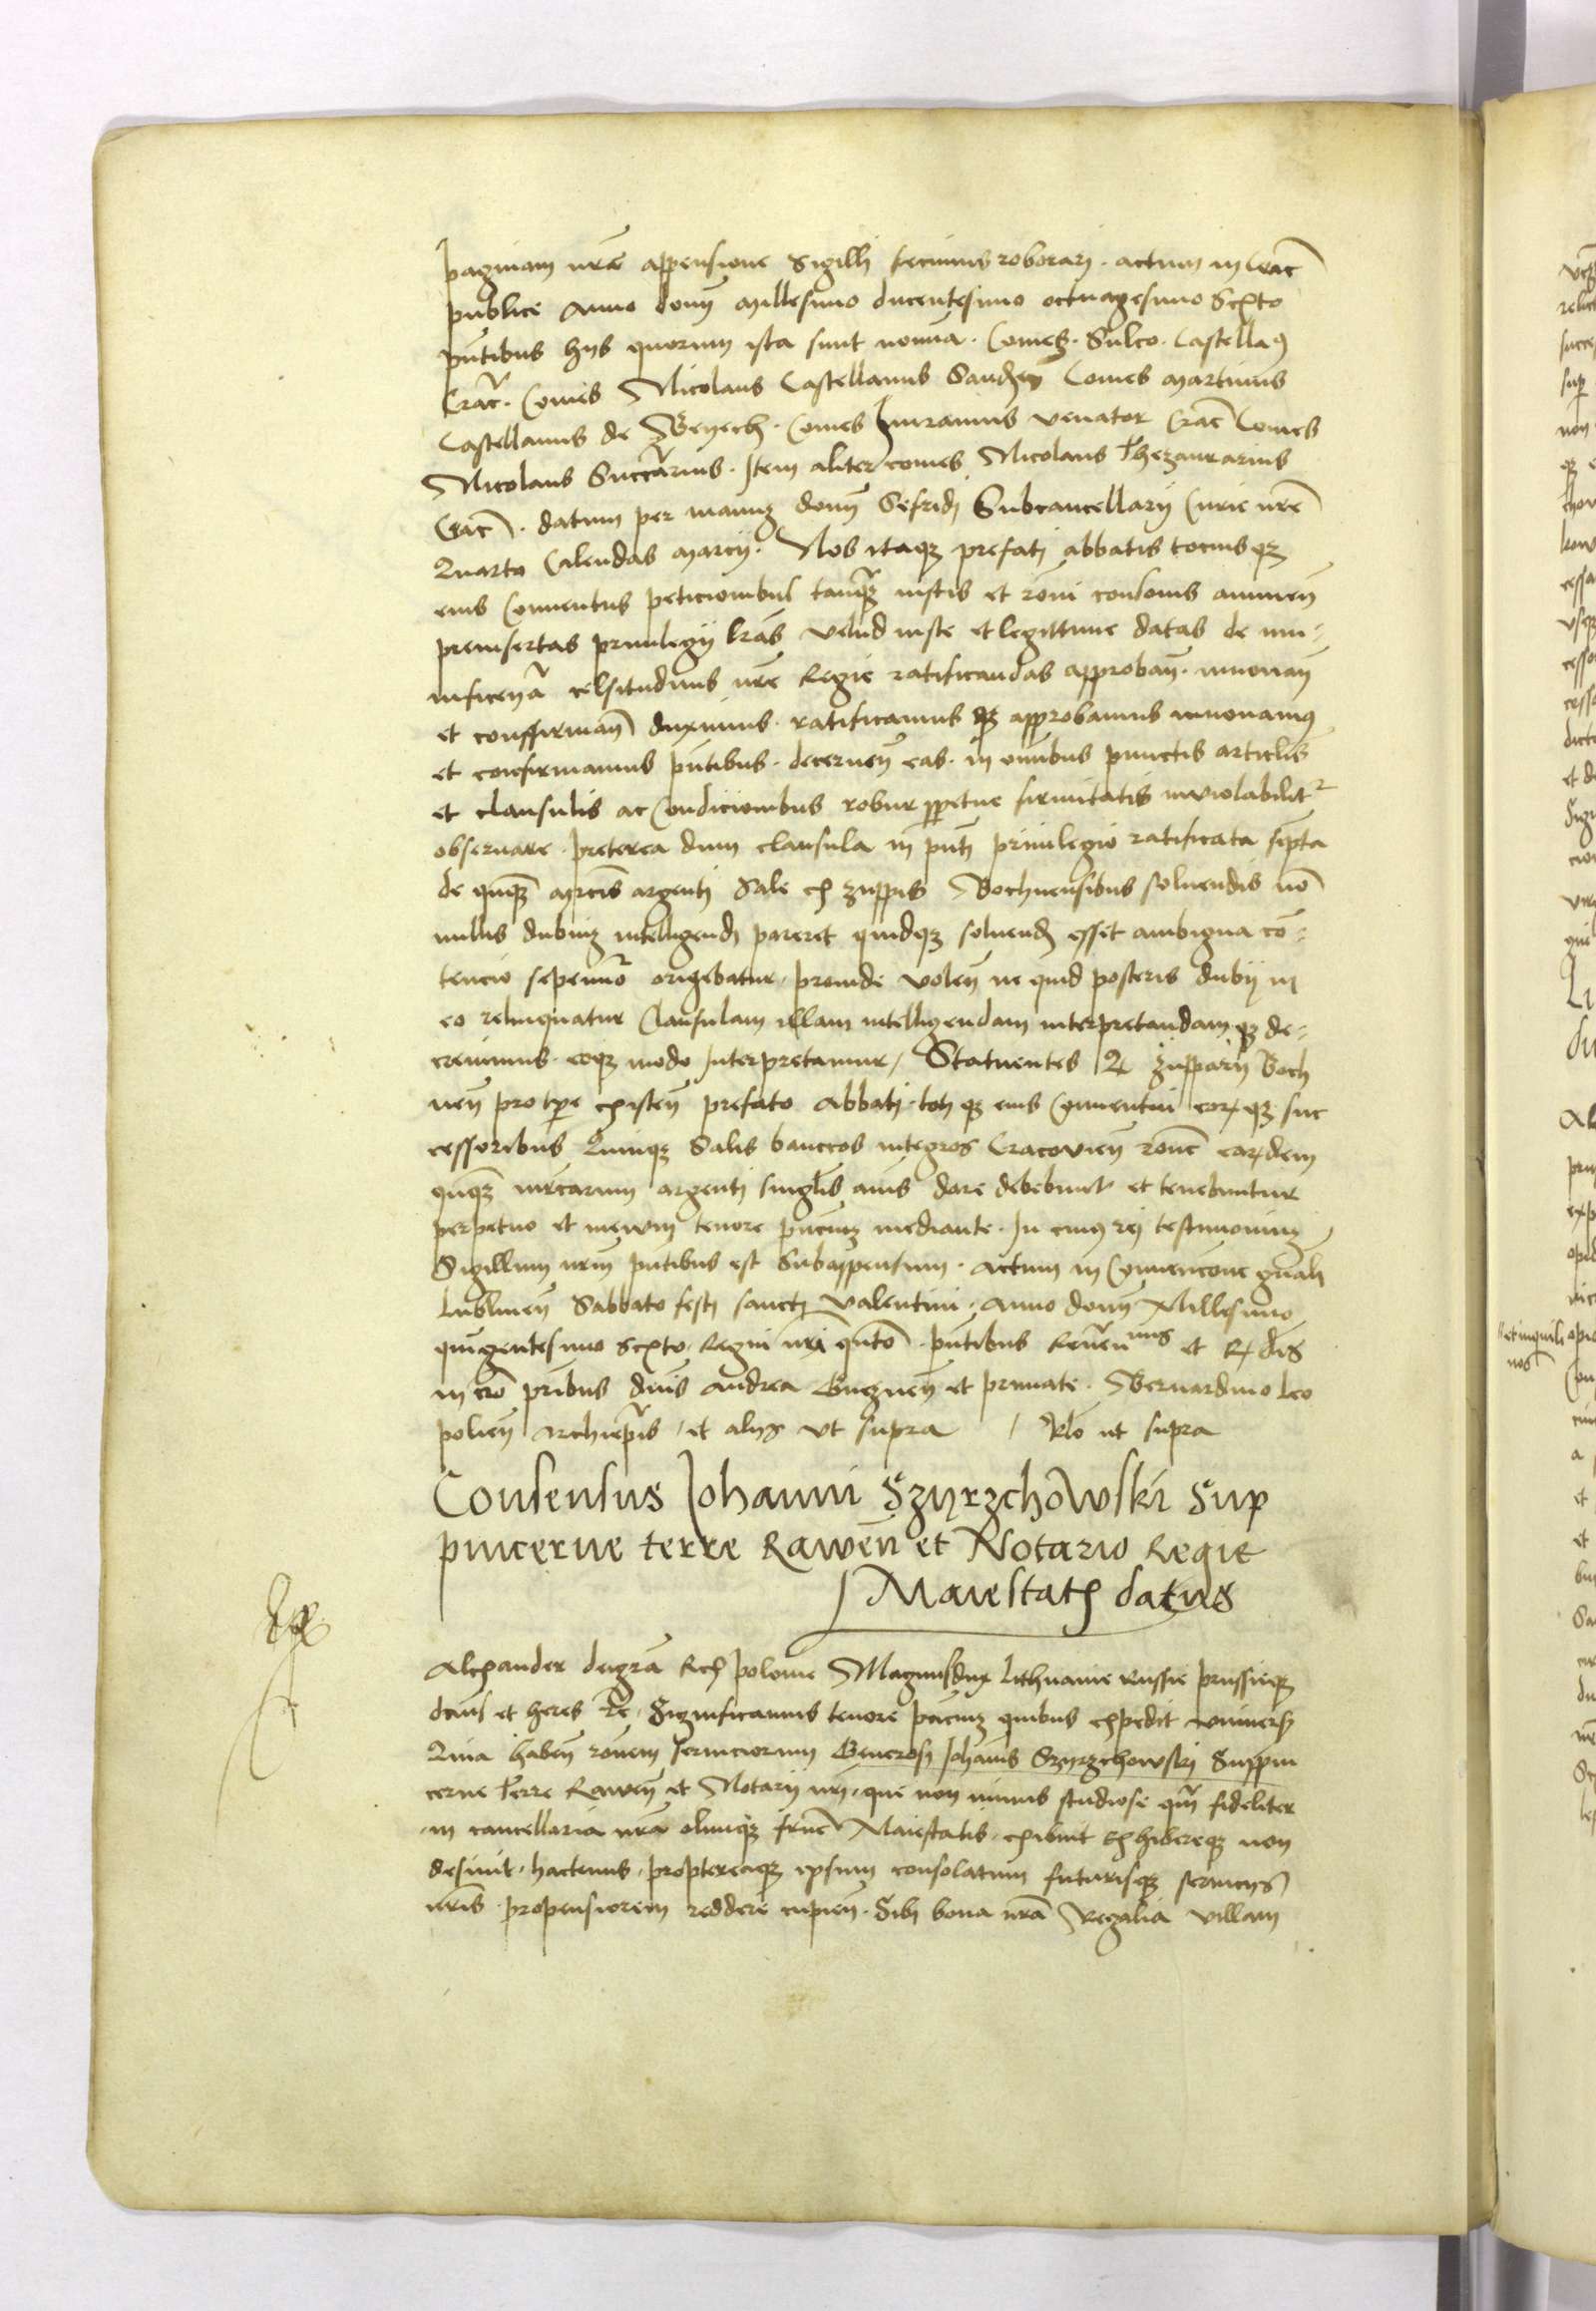 paginam nr̄e appensione Sigilli fecimus roborari. actum in Crac̄
publice Anno domī Millesimo ducentesimo octuagesimo Sexto
pn̄tibus hijs quorum ista sunt nomīa. Comes. Sulco. Castella9
Crac̄. Comes Nicolaus Castellanus Sandeceñ Comes Martinus
Castellanus de Comes venator Crac̄ Comes
Nicolaus Succ̄arius. Item aliter comes Nicolaus Thezaurarius
Crac̄. datum per manuȝ domī Sefridi Subcancellarij Curie nr̄e
Quarto Calendas Marcij. Nos itaqȝ prefati abbatis tociusqȝ
eius Conuentus peticionibus tamq̄ȝ iustis et rōni consonis annueñ
preinsertas priuilegij lr̄as velud iuste et legittime datas de mu-
nificen̄a celsitudinis nr̄e Regie ratificandas approbañ. innouañ
et confirmañ duximus. ratificamus qȝ approbamus innouam9
et confirmamus pn̄tibus. decerneñ eas. in om̄ibus punctis articlis̄
et clausulis ac Condicionibus robur ꝑpetue firmitatis inviolabilit2
obseruare. preterea dum clausula in pn̄ti priuilegio ratificata sc̄pta
de quinqȝ mrcis argenti Sale ex zuppis Bochnensibus soluendis nō
nullis dubiuȝ intelligendi pareret quidqȝ soluendi esset ambigua cō-
tencio sepenuo᷑ origebatur, proinde voleñ ne quid posteris dubij in
eo relinquatur Clausulam illam intelligendam interpretandamqȝ de-
creuimus. eoqȝ modo Interpretamur, Statuentes Qꝫ Zupparij Boch
neñ pro tꝑe existeñ prefato Abbati. toti qȝ eius Conuentui eorꝫ qȝ suc
cessoribus Quinqȝ Salis bancros integros Cracovieñ rōne earꝫdem
quinqȝ mrcarum argenti singlis̄ ānis dare debebunt et tenebuntur
perpetuo et in ewm tenore pn̄ciuȝ mediante. In cui9 rei testimoniuȝ
Sigillum nrm̄ pn̄tibus est Subappensum. Actum in Conuencōne gn̄ali
Lublineñ Sabbato festi sancti valentini. Anno domī Millesimo
quingentesimo sexto, Regni nr̄i qn̄to. pn̄tibus Reuereñ mis et Rꝫ dis̄
in cr̄o prībus dnīs Andrea Gneznēn et primate. Bernardino Leo
polieñ archiep̄is, et alijs vt supra / Rlo᷑ ut supra
Consensus Johanni Szyrzchowski Sup
pincerne terre Raweñ et Notario Regie
Maiestatis datus
Alexander dei grā Rex polonie Magnusdux Lithuanie Russie prussieqȝ
dn̄us et heres ꝛc̄. Significamus tenore pn̄ciuȝ quibus expedit vniuersis
Quia habeñ rōnem seruiciorum Generosi Johānis Szyrzchowski Suppin
cerne Terre Raweñ et Notarij nr̄i, que non minus studiose qm̄ fideliter
in cancellaria nr̄a olimqȝ frn̄e Maiestatis, exibuit Exhibereqȝ non
desinit. hactenus. proptereaqȝ ipsum consolatum futurisqȝ seruicijs
nr̄is propensiorem reddere cupieñ. Sibi bona nr̄a Regalia villam
et inquili
nos